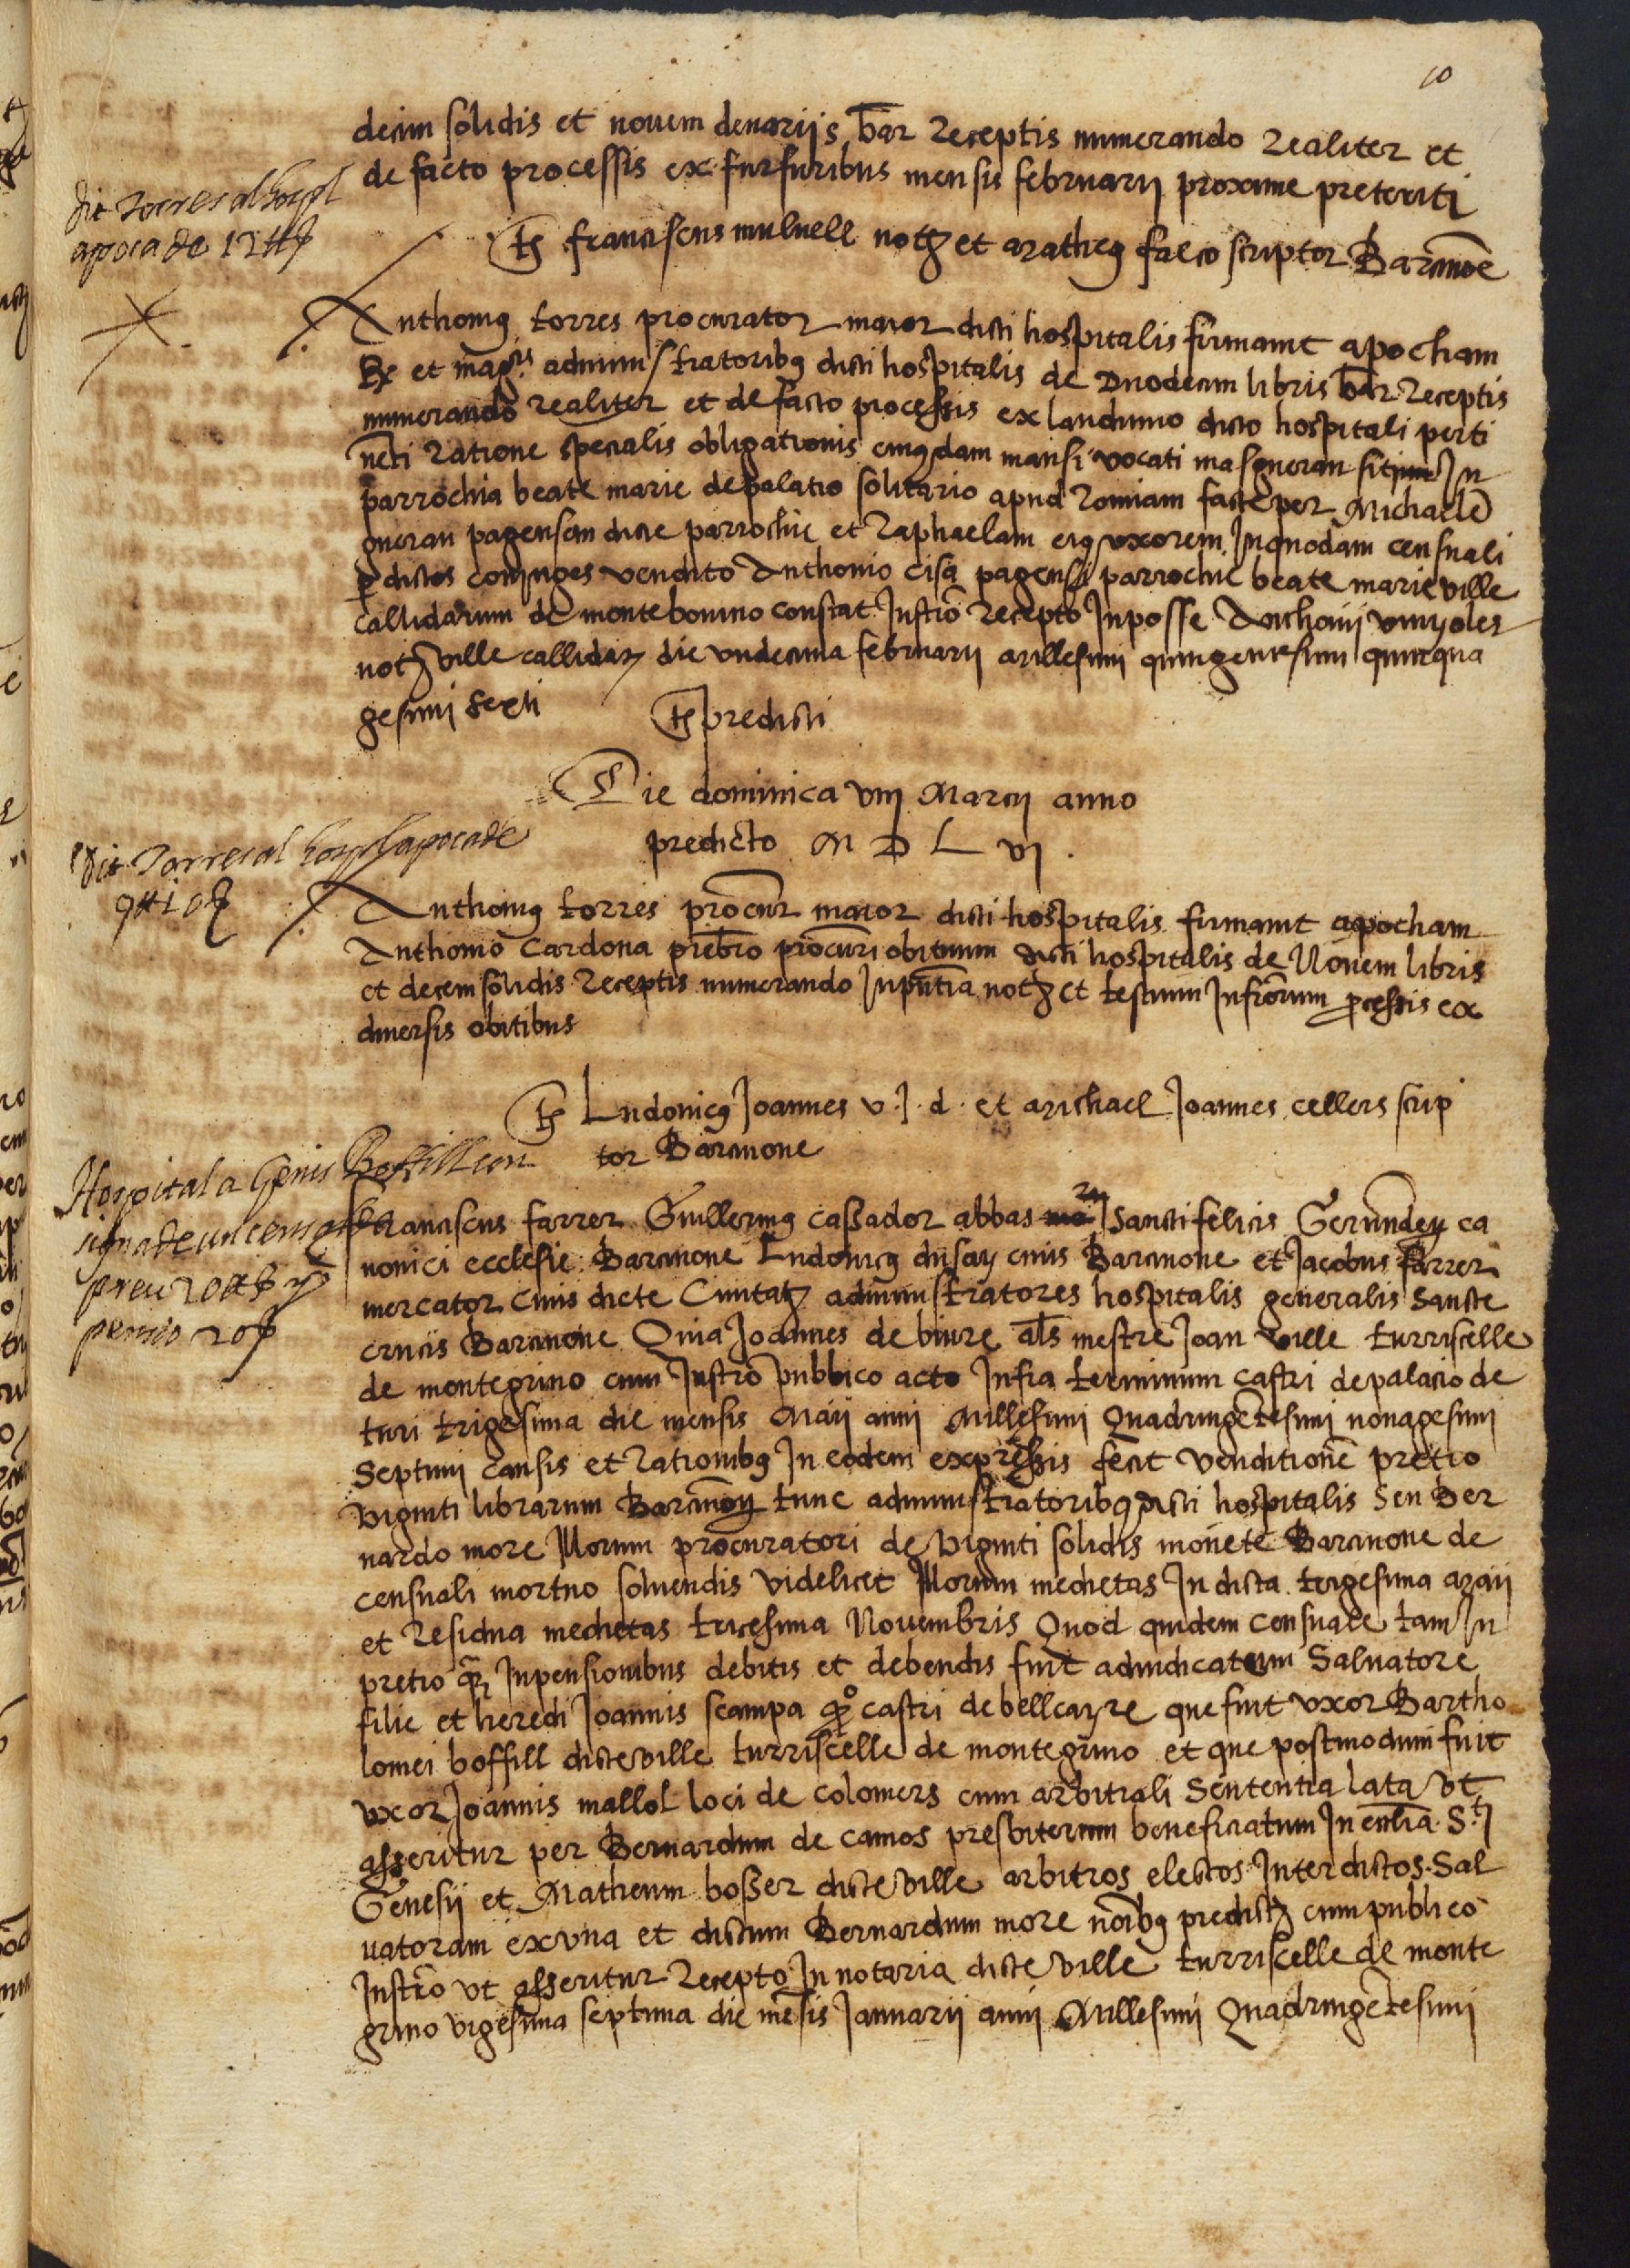 10
decim solidis et novem denariis bar receptis numerando realiter et
de facto processis ex furfuribus mensis februarii proxime preteriti
dit Torres al hospl
apoca de 12 ℔
ts franciscus mulnell notz et Matheus falco scriptor Barcinone
Anthonius torres procurator maior dicti hospitalis firmavit apocham
Rx et magcis administratoribus dicti hospitalis de Duodecim libris bar receptis
numerando realiter et de facto processis ex laudimio dicto hospitali perti
neti ratione specialis obligationis cuiusdam mansi vocati mas gueran siti In
parrochia beate marie de palatio solitario apud romiam facte per Michaele
gueran pagensem dicte parrochie et Raphaelam eius uxorem In quodam censuali
p dictos coniuges vendito Anthonio cisa pagensi parrochie beate marie ville
callidarum de montebovino constat Instro recepto In posse Anthonii vinyoles
notz ville callidarz die undecima februarii Millesimi quingentesimi quinqua
gesimi sexti ts predicti
Die dominica viii Marcii anno
predicto M D L vi.
dit Torres al hospl apoca de
9 ℔ 10 ß
Anthonius torres procur maior dicti hospitalis firmavit apocham
Anthonio Cardona prebro procuri obituum dicti hospitalis de Novem libris
et decem solidis receptis numerando In pntia notz et testium Infrorum processis ex
diversis obitibus
ts Ludovicus Joannes v. J. d. et Michael Joannes cellers scrip
tor Barcinone
Hospital a Genis Boffill con
signa de un censal
preu 20 ℔
pensio 20 ß
franciscus farrer Guillermus caßador abbas Sancti felicis Gerunden ca
nonici ecclesie Barcinone Ludovicus dusay civis Barcinone et Jacobus farrer
mercator civis dicte Civitatz administratores hospitalis generalis Sancte
crucis Barcinone Quia Joannes de biure als mestre Joan ville turriscelle
de montegrino cum Instro publico acto Infra terminum castri de palacio de
turi trigesima die mensis Maii anni Millesimi Quadringetesimi nonagesimi
Septimi causis et rationibus In eodem expressis fecit venditione pretio
viginti librarum Barcinon tunc administratoribus dicti hospitalis Seu Ber
nardo more Illorum procuratori de viginti solidis monete Barcinone de
censuali mortuo solvendis videlicet Illorum medietas In dicta trigesima Maii
et residua medietas tricesima Novembris Quod quidem Censuale tam In
pretio qz In pensionibus debitis et debendis fuit adiudicatum Salvatore
filie et heredi Joannis scampa qo castri de bellcayre que fuit uxor Bartho
lomei boffill dicte ville turriscelle de montegrino et que postmodum fuit
uxor Joannis mallol loci de colomers cum arbitrali Sententia lata ut
asseritur per Bernardum de camos presbiterum beneficiatum In eccla Sti
Genesii et Matheum boßer dicte ville arbitros electos Inter dictos Sal
vatoram ex una et dictum Bernardum more noibus predictz cum publico
Instro ut asseritur recepto In notaria dicte ville turriscelle de monte
grino vigesima septima die mesis Januarii anni Millesimi Quadringetesimi